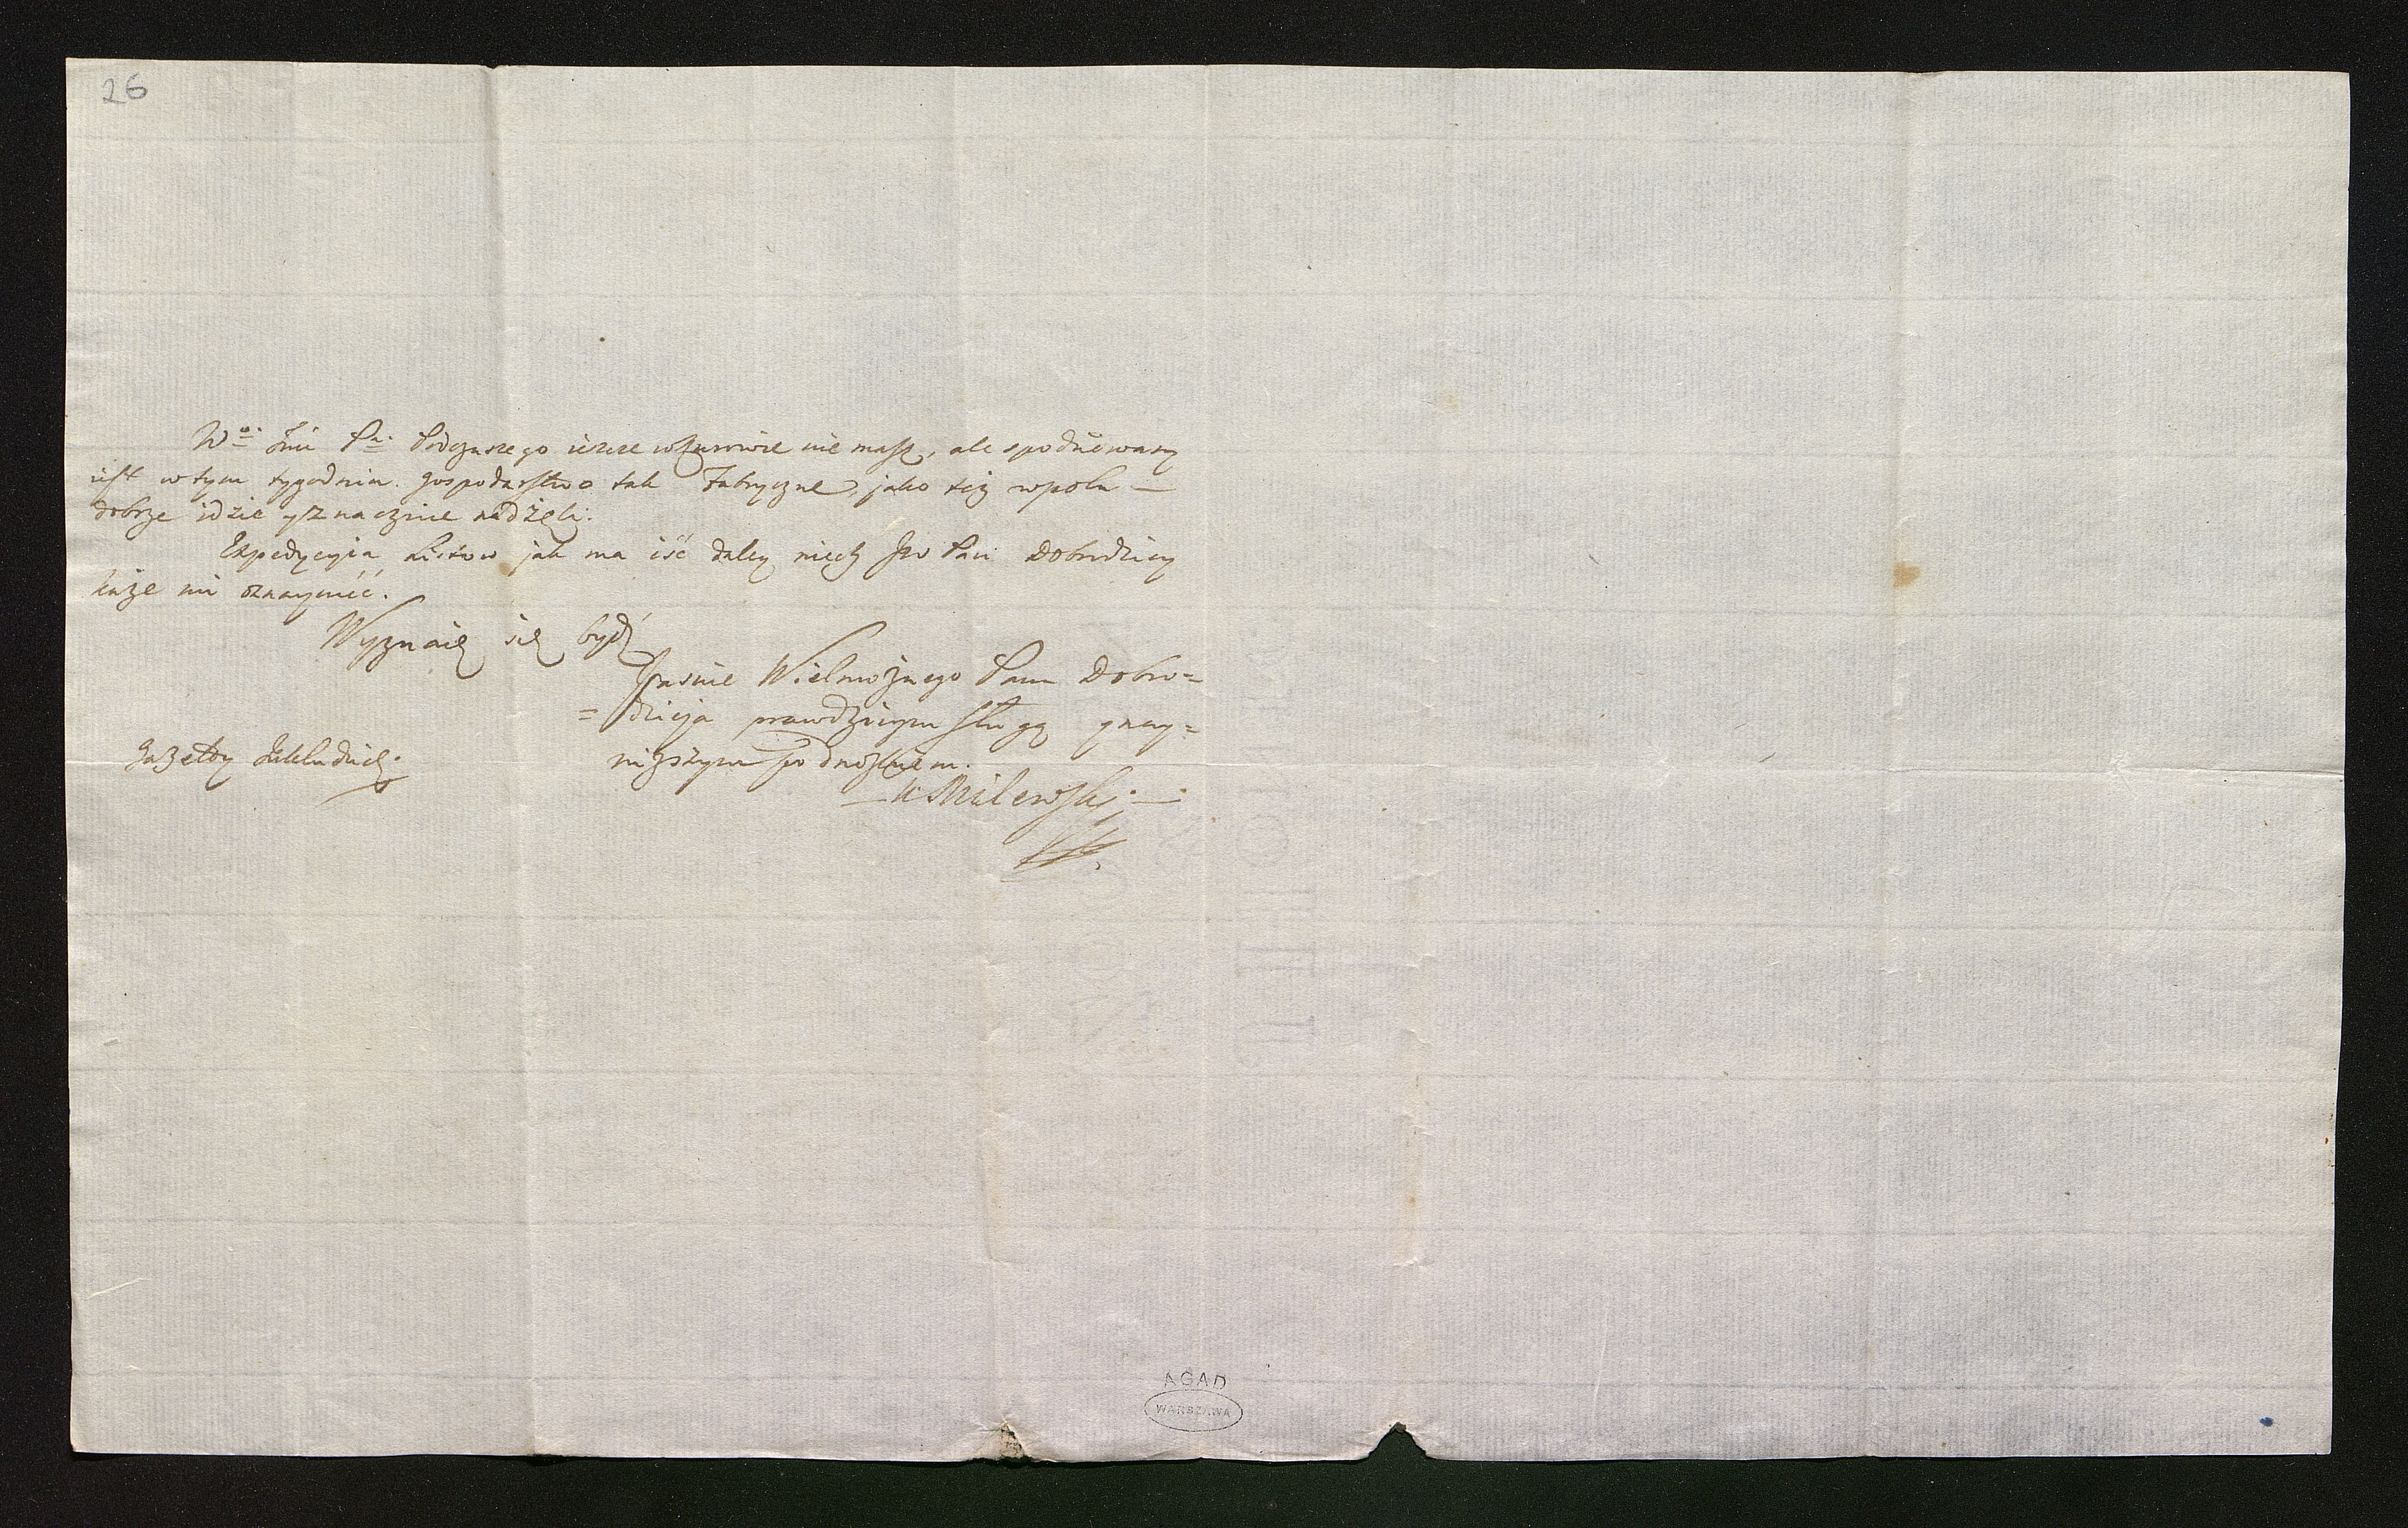 26
W<sup>o</sup> Jmi P<sup>a</sup> Podczaszego ieszcze w Kurowie nie masz, ale spodziewany
iest w tym tygodniu. Gospodarstwo tak Fabryczne, jako też w polu —
dobrze idzie y znacznie nadżęli.
Expedycyia Listow jak ma iść daley niech JW Pan Dobrodziey
każe mi oznaymić.
Wyznaię się bydź
Jasnie Wielmożnego Pana Dobro=
=dzieja prawdziwym sługą y nay=
niższym podnożkiem.
Gazetty
Milewski
AGAD
WARSZAWA